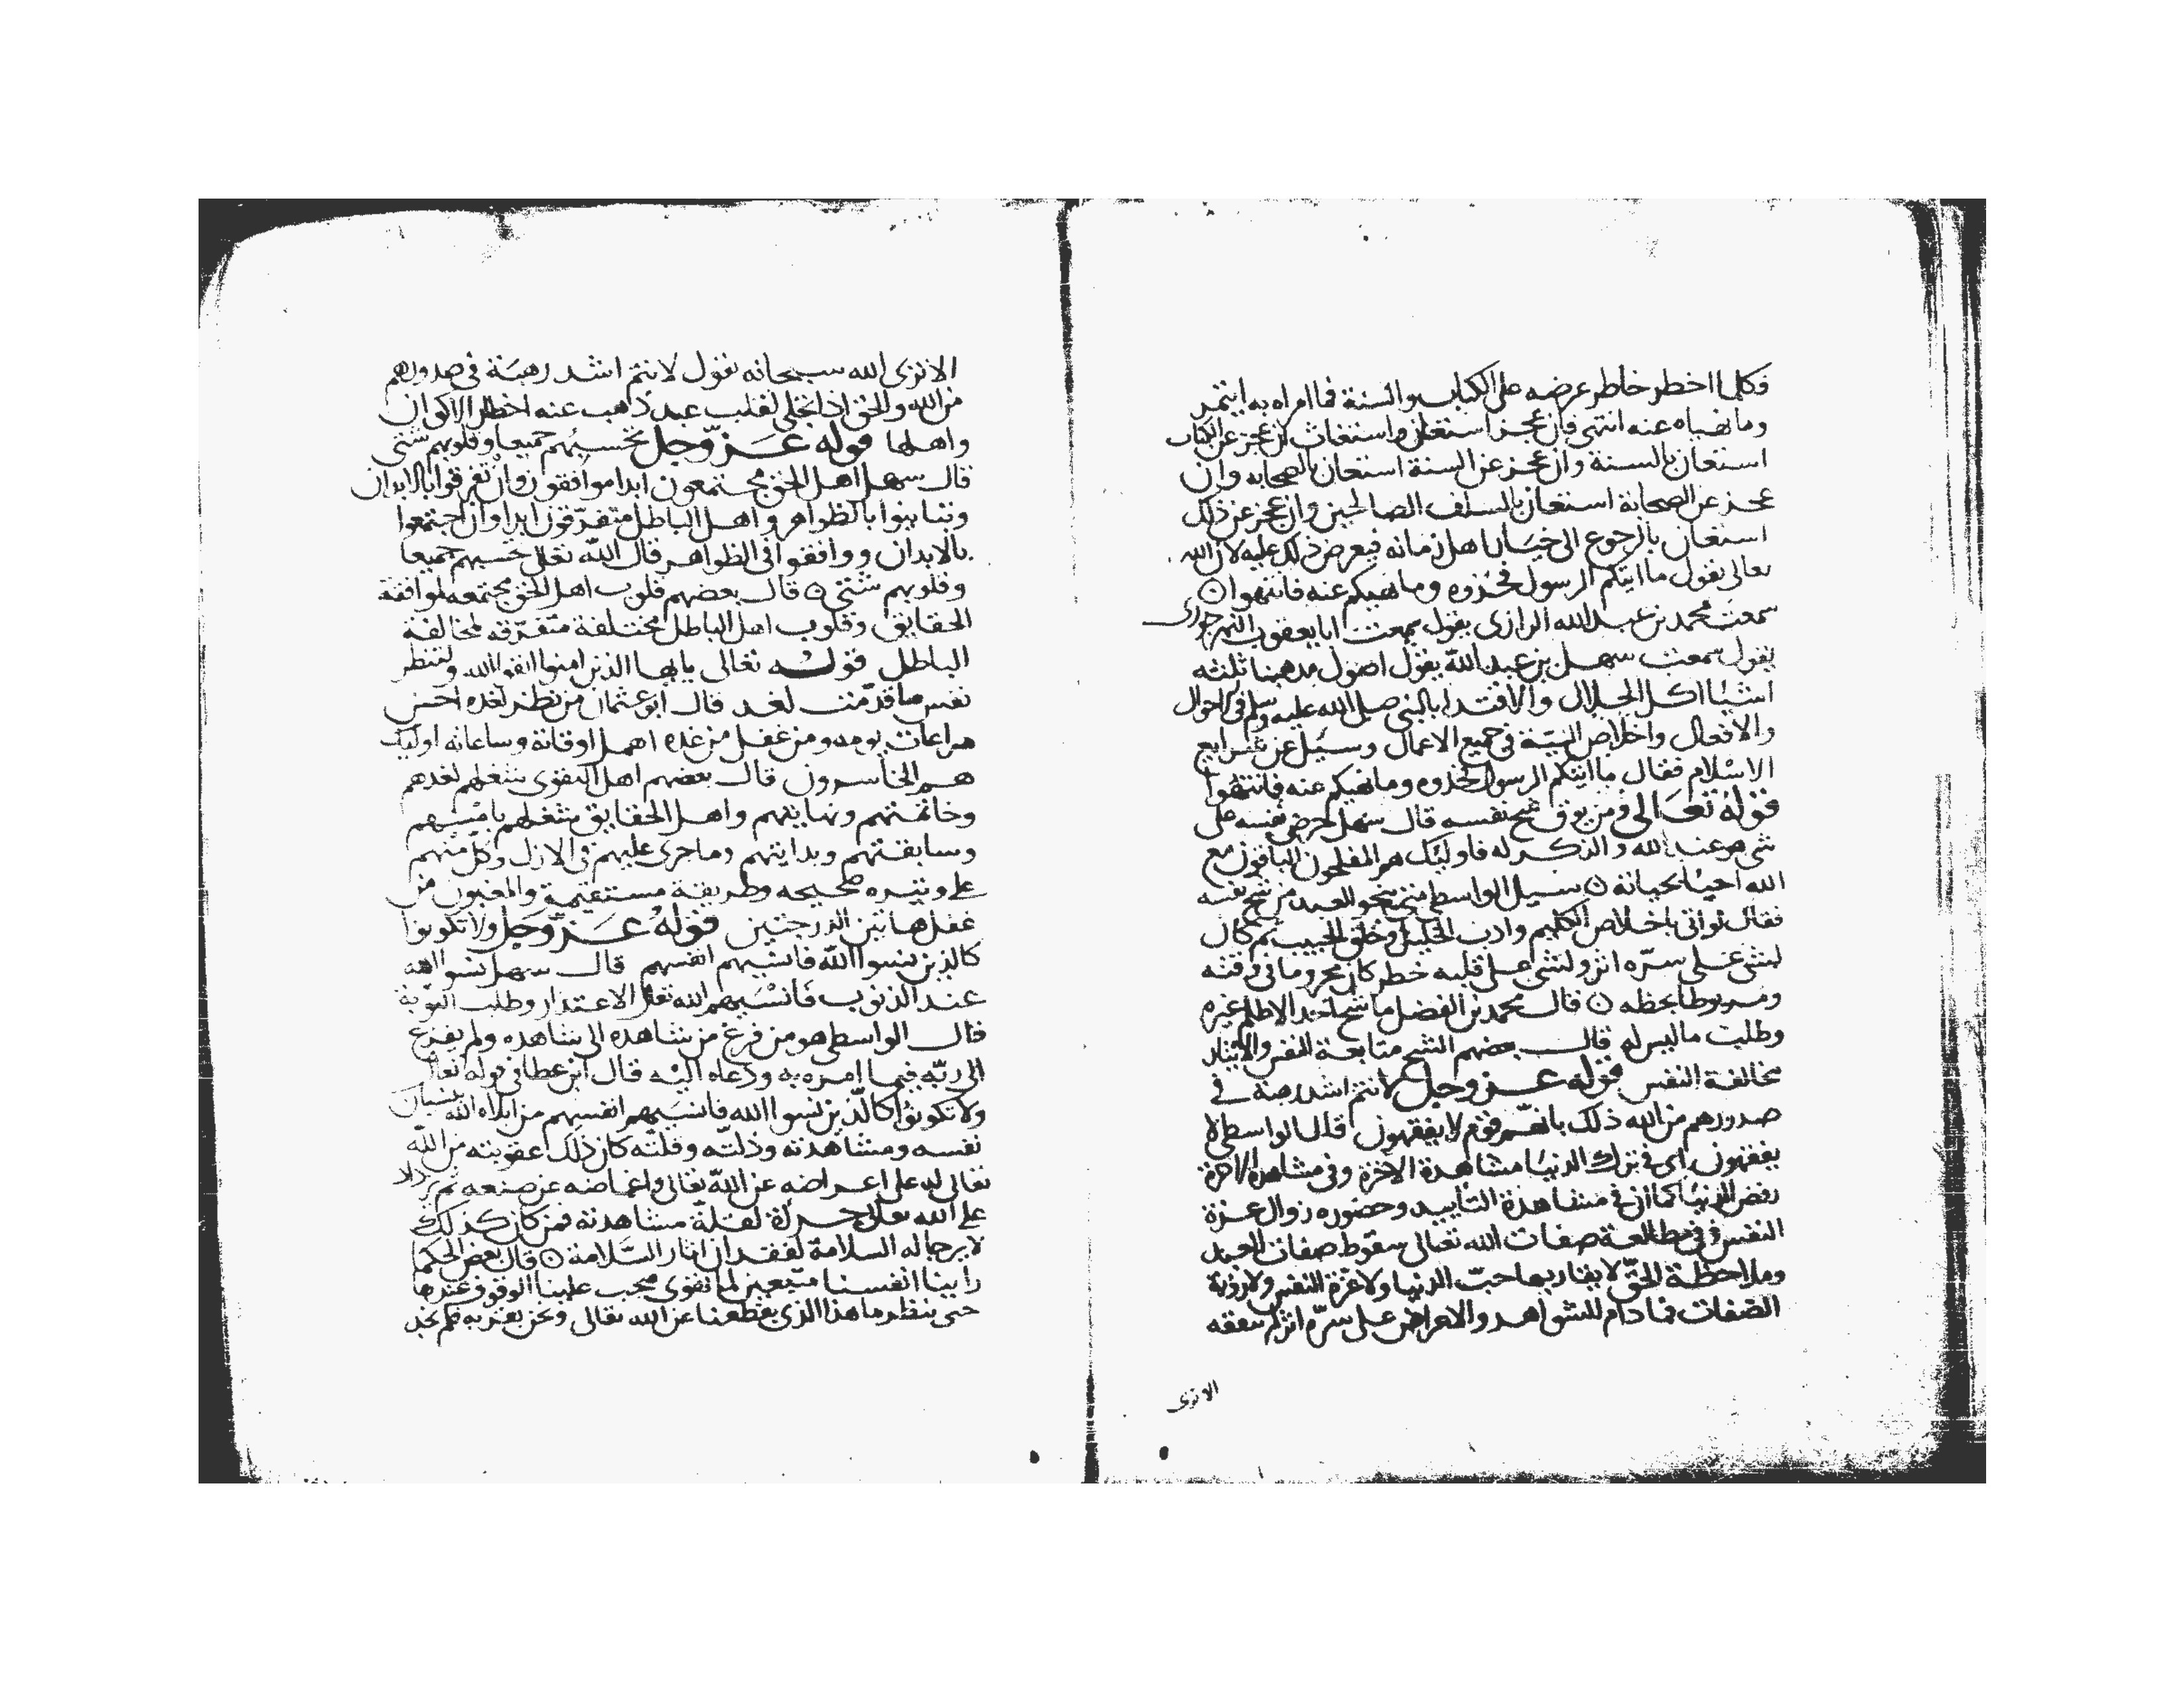 فكلما اخطر خاطر عرضه على الكتاب والسنة فما امراه به ايتمر
وما نهياه عنه انتهى فان عجز استعان واستغاث ان عجز عن الكتاب
استعان بالسنة وان عجز عن السنة استعان بالصحابه وان
عجز عن الصحابة استعان بالسلف الصالحين وان عجز عن ذلك
استعان بالرجوع الى خيار اهل زمانه فيعرض ذلك عليه لان الله
تعالى يقول ما اتيكم الرسول فخذوه وما نهيكم عنه فانتهوا
سمعت محمد بن عبد الله الرازى يقول سمعت ابا يعقوب النهرجورى
يقول سمعت سهل بن عبد الله يقول اصول مذهبنا ثلثه
اشيا اكل الحلال والاقتدا بالنبى صلى الله عليه وسلم فى الاحوال
والافعال واخلاص النية فى جميع الاعمال وسيل عن شرايع
الاسلام فقال ما اتيكم الرسول فخذوه وما نهيكم عنه فانتهوا
قوله تعالى ومن يوق شح نفسه قال سهل حرض نفسه على
شى هو عند الله والذكر له فاوليك هم المفلحون الباقون مع
الله احيا بحياته سيل الواسطى بم ينجو العبد من شح نفسه
فقال لو اتى باخلاص الكليم وادب الخليل وخلق الحبيب ثم كان
لشى على سره اثر ولشى على قلبه خطر كان محروما فى وقته
ومربوطا بحظه قال محمد بن الفضل ما شح احد الا طلب غيره
وطلبت ماليس له قال بعضهم الشح متابعة النفس والايثار
مخالفة النفس قوله عز وجل لانتم اشد رهبة فى
صدورهم من الله ذلك بانهم قوم لا يفقهون قال الواسطى لا
يفقهون اى فى ترك الدنيا مشاهدة الاخرة وفى مشاهدة الاخرة
رفض الدنيا كما ان فى مشاهدة التأييد وحضوره زوال عزة
النفس وفى مطالعة صفات الله تعالى سقوط صفات العبد
وملاحظة الحق لا يقاربها حب الدنيا ولا عزة النفس ولا روية
الصفات فما دام للشواهد والاعراض على سره اثر لم يفقه
الا ترى
الا ترى الله سبحانه يقول لانتم اشد رهبة فى صدورهم
من الله والحق اذا تجلى لقلب عبد ذهب عنه اخطار الاكوان
واهلها قوله عز وجل تحسبهم جميعا وقلوبهم شتى
قال سهل اهل الحق مجتمعون ابدا موافقون وان تفرقوا بالابدان
وتباينوا بالظواهر واهل الباطل متفرقون ابدا وان اجتمعوا
بالابدان ووافقوا فى الظواهر قال الله تعالى تحسبهم جميعا
وقلوبهم شتى قال بعضهم قلوب اهل الحق مجتمعه لموافقة
الحقايق وقلوب اهل الباطل مختلفة متفرقه لمخالفة
الباطل قوله تعالى يا يها الذين امنوا اتقوا الله ولتنظر
نفس ما قدمت لغد قال ابو عثمان من نظر لغده احسن
مراعات يومه ومن غفل من غده اهمل اوقاته وساعاته اوليك
هم الخاسرون قال بعضهم اهل التقوى شغلهم لغدهم
وخاتمتهم ونهايتهم واهل الحقايق شغلهم بامسهم
وسابقتهم وبدايتهم وما جرى عليهم فى الازل وكل منهم
على وتيره صحيحه وطريقة مستقيمة والمغبون من
غفل ما بين الدرجتين قوله عز وجل ولا تكونوا
كالذين نسوا الله فانسيهم انفسهم قال سهل نسوا الله
عند الذنوب فانسيهم الله تعالى الاعتذار وطلب التوبة
قال الواسطى هو من فرغ من شاهده الى شاهده ولم يفزع
الى ربه فيما امره به ودعاه اليه قال ابن عطا فى قوله تعالى
ولا تكونوا كالذين نسوا الله فانسيهم انفسهم من ابلاه الله بنسيان
نفسه ومشاهدته وذلته وقلته كان ذلك عقوبته من الله
تعالى له على اعراضه عن الله تعالى واغماضه عن صنعه ثم
على الله تعالى لقلة مشاهدته فمن كان كذلك
لا يرجا له السلامة لفقدان اثار السلامة قال بعض الحكما
راينا انفسنا متبعين لما تقوى فيجب علينا الوقوف عندها
حتى ينظر ما هذا الذى يقطعنا عن الله تعالى ونحن به فلم نجد